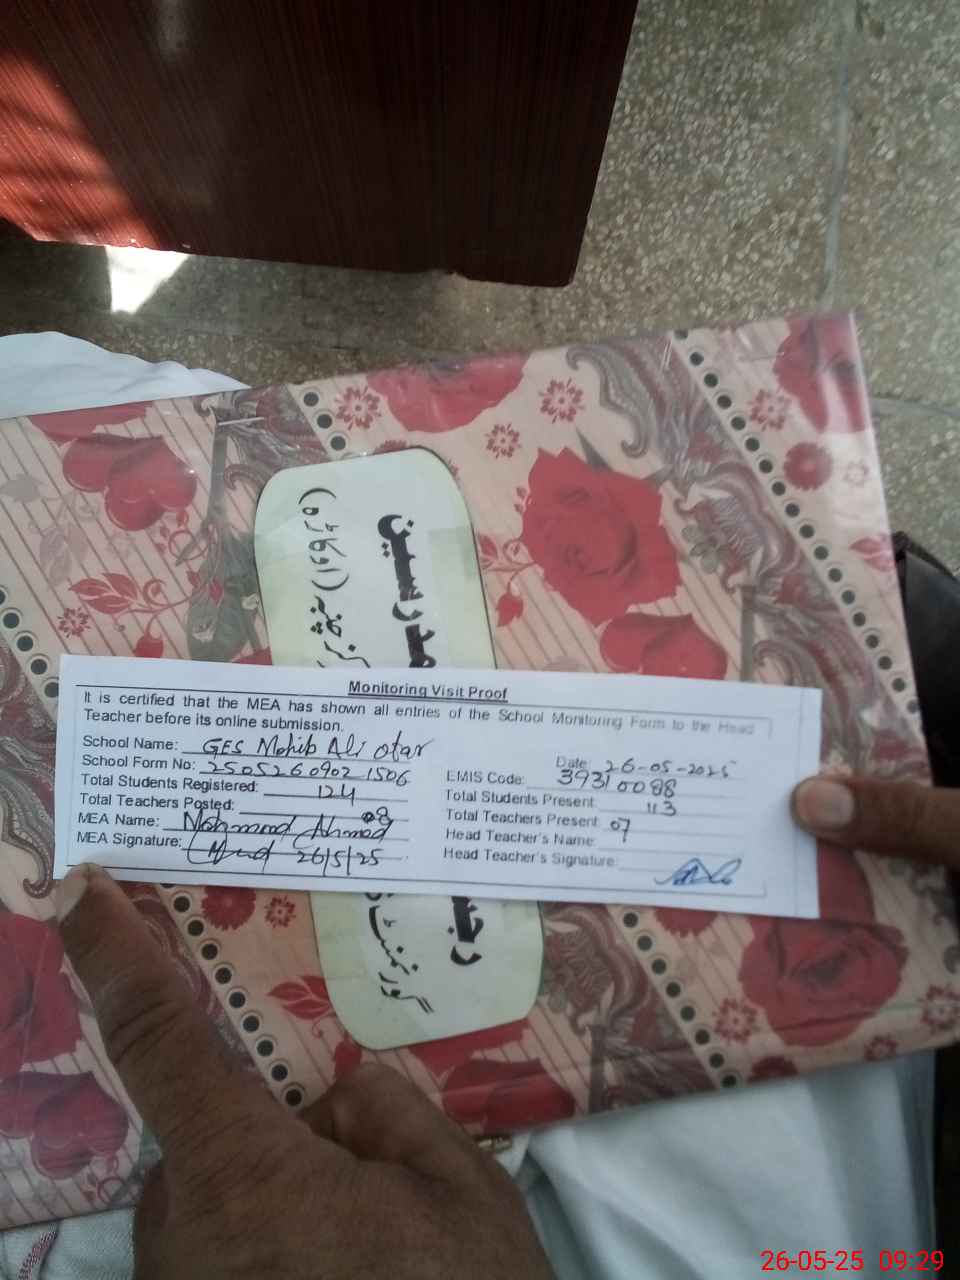 مدرسین
(اوکاڑہ)
Monitoring Visit Proof
It is certified that the MEA has shown all entries of the School Monitoring Form to the Head
Teacher before its online submission.
School Name: GES Mohib Ali otar
Date: 26-05-2025
School Form No: 25052609021506
EMIS Code: 39310088
Total Students Registered: 124
Total Students Present: 113
Total Teachers Posted: 08
Total Teachers Present: 07
MEA Name: Mohmmad Ahmad
Head Teacher's Name:
MEA Signature: 26/5/25
Head Teacher's Signature:
گورنمنٹ
26-05-25 09:29